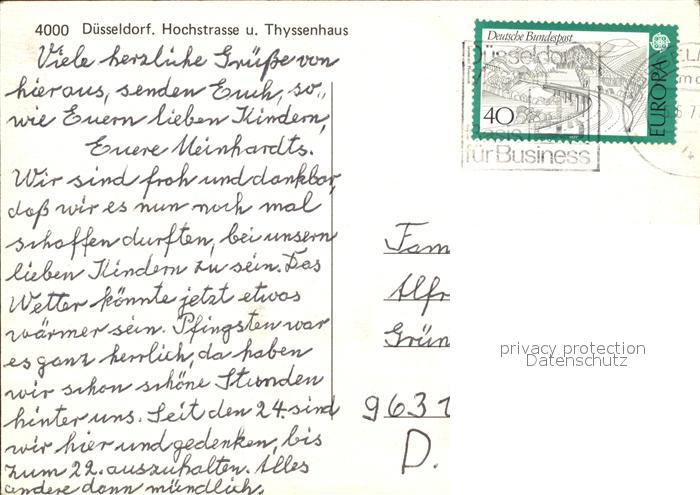 4000 Düsseldorf. Hochstrasse u. Thyssenhaus
Viele herzliche Grüße von
hieraus, senden Euch, so,
wie Euern lieben Kindern,
Euere Meinhardts.
Wir sind froh und dankbar,
daß wir es nun noch mal
schaffen durften, bei unsern
lieben Kindern zu sein. Das
Wetter könnte jetzt etwas
wärmer sein. Pfingsten war
es ganz herrlich, da haben
wir schon schöne Stunden
hinter uns. Seit den 24. sind
wir hier und gedenken, bis
zum 22. auszuhalten. Alles
andere dann mündlich.
Deutsche Bundespost
40
EUROPA
Düsseldorf
für Business
Fam
Alfr
Grün
9631
D.
privacy protection
Datenschutz